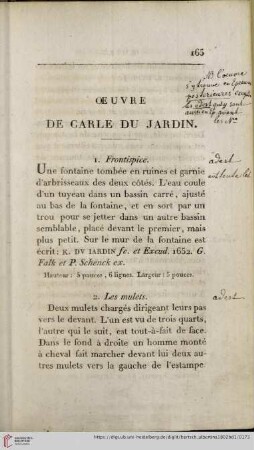 165
ŒUVRE
DE CARLE DU JARDIN.
1. Frontispice.
Une fontaine tombée en ruines et garnie
d'arbrisseaux des deux côtés. L'eau coule
d'un tuyeau dans un bassin carré, ajusté
au bas de la fontaine, et en sort par un
trou pour se jetter dans un autre bassin
semblable, placé devant le premier, mais
plus petit. Sur le mur de la fontaine est
écrit: K. DV IARDIN fe. et Excud. 1652. G.
Falk et P. Schenck ex.
Hauteur: 6 pouces, 6 lignes. Largeur: 5 pouces.
2. Les mulets.
Deux mulets chargés dirigeant leurs pas
vers le devant. L'un est vu de trois quarts,
l'autre qui le suit, est tout-à-fait de face.
Dans le fond à droite un homme monté
à cheval fait marcher devant lui deux au-
tres mulets vers la gauche de l'estampe